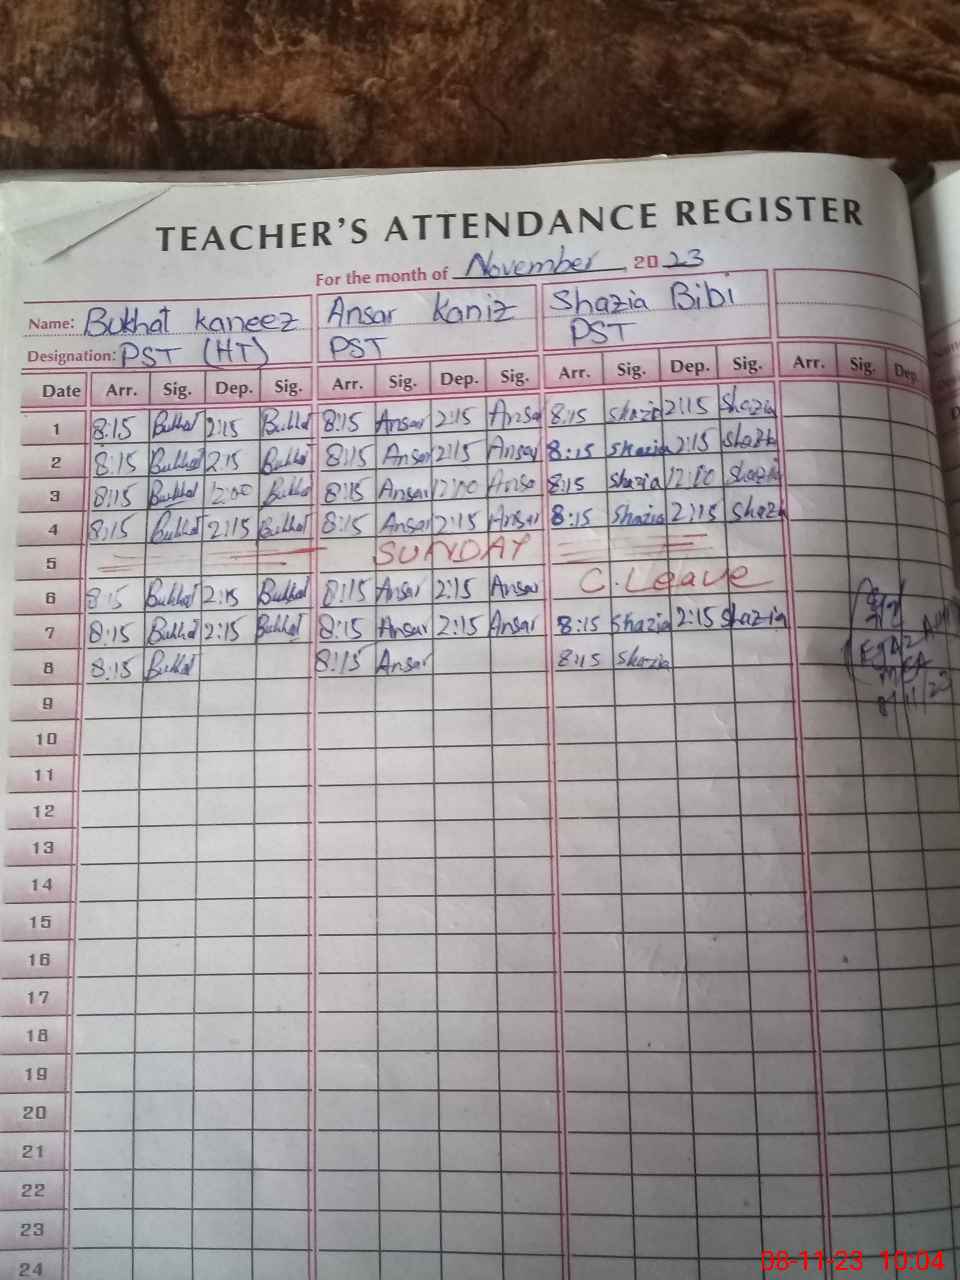 TEACHER'S ATTENDANCE REGISTER
For the month of November, 20 23
Name: Bukhat Kaneez Ansar Kaniz Shazia Bibi
Designation: PST (HT) PST PST
Date Arr. Sig. Dep. Sig. Arr. Sig. Dep. Sig. Arr. Sig. Dep. Sig. Arr. Sig. Dep.
1 8:15 Bukhat 2:15 Bukhat 8:15 Ansar 2:15 Ansar 8:15 Shazia 2:15 Shazia
2 8:15 Bukhat 2:15 Bukhat 8:15 Ansar 2:15 Ansar 8:15 Shazia 2:15 Shazia
3 8:15 Bukhat 12:00 Bukhat 8:15 Ansar 12:00 Ansar 8:15 Shazia 12:00 Shazia
4 8:15 Bukhat 2:15 Bukhat 8:15 Ansar 2:15 Ansar 8:15 Shazia 2:15 Shazia
5 SUNDAY
6 8:15 Bukhat 2:15 Bukhat 8:15 Ansar 2:15 Ansar C. Leave
7 8:15 Bukhat 2:15 Bukhat 8:15 Ansar 2:15 Ansar 8:15 Shazia 2:15 Shazia
8 8:15 Bukhat 8:15 Ansar 8:15 Shazia
MEA
8/11/23
9
10
11
12
13
14
15
16
17
18
19
20
21
22
23
24
08-11-23 10:04